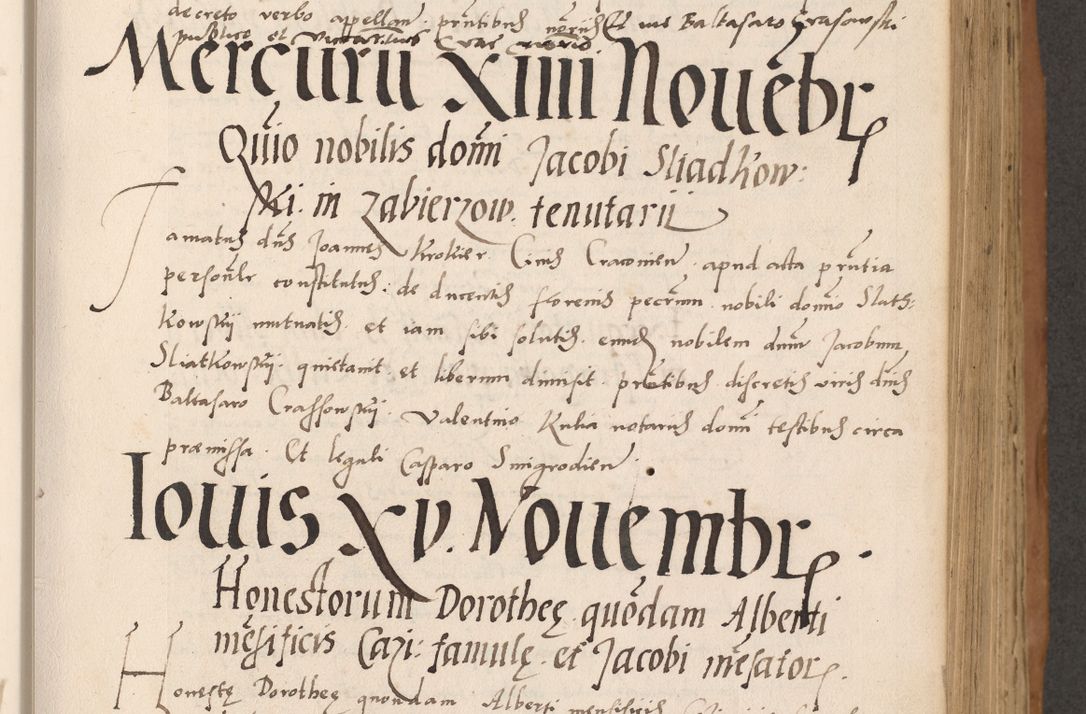 decreto verbo appellem. pntibus nobis Et me Baltasaro Crasowski
publico et
Mercurii Xiiii Nouēbr
Quio nobilis domi Jacobi Sliadkow:
ski. in zabierzow. tenutarii
Famatus dns Joannes Krokier Ciuis Cracouien apud acta pntia
personlr constitutus. de ducentis florenis pecunm nobili domio Slath:
kowskij mutuatis. et iam sibi solutis. eundē nobilem dnm Jacobum
Sliatkowskij. quietauit et liberum dimisit pntibus discretis viris dnis
Baltasaro Crassowskij. Valentino Kulia notariis domi testibus circa
præmissa. Et legali Casparo Smigrodien.
Iouis xv. Nouembr.
Honestorum Dorotheę quōdam Alberti
mēsificis Cazi: famulę. et Jacobi mēsator.
Honestę Dorotheę quondam Alberti mensificis